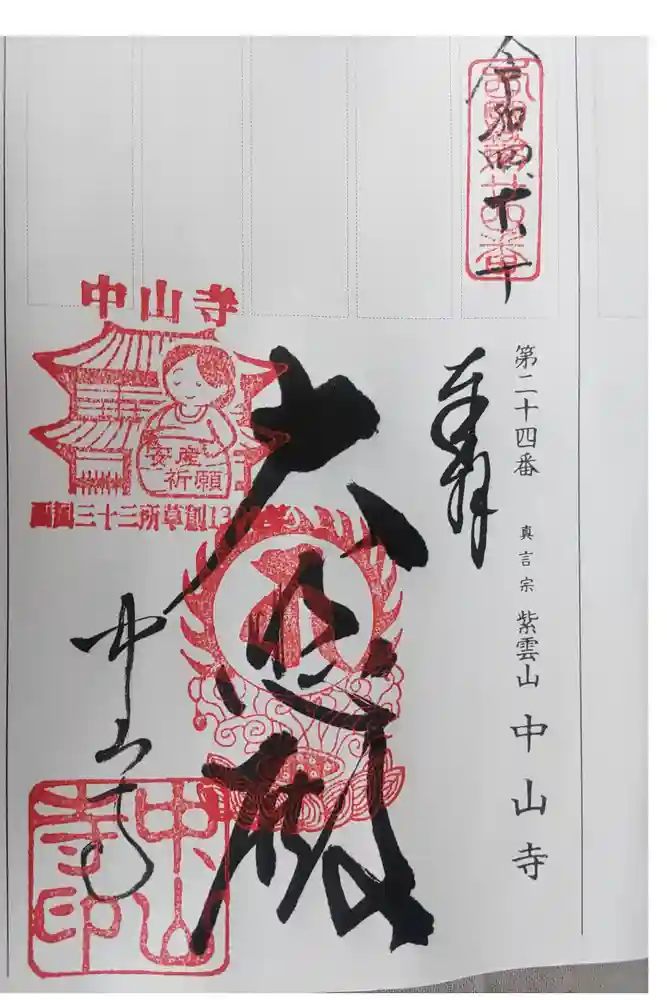 令和四、六、十
奉拝
第二十四番 真言宗 紫雲山 中山寺
大悲殿
中山寺
中山寺
安産
祈願
西国三十三所草創1300年
中山寺印